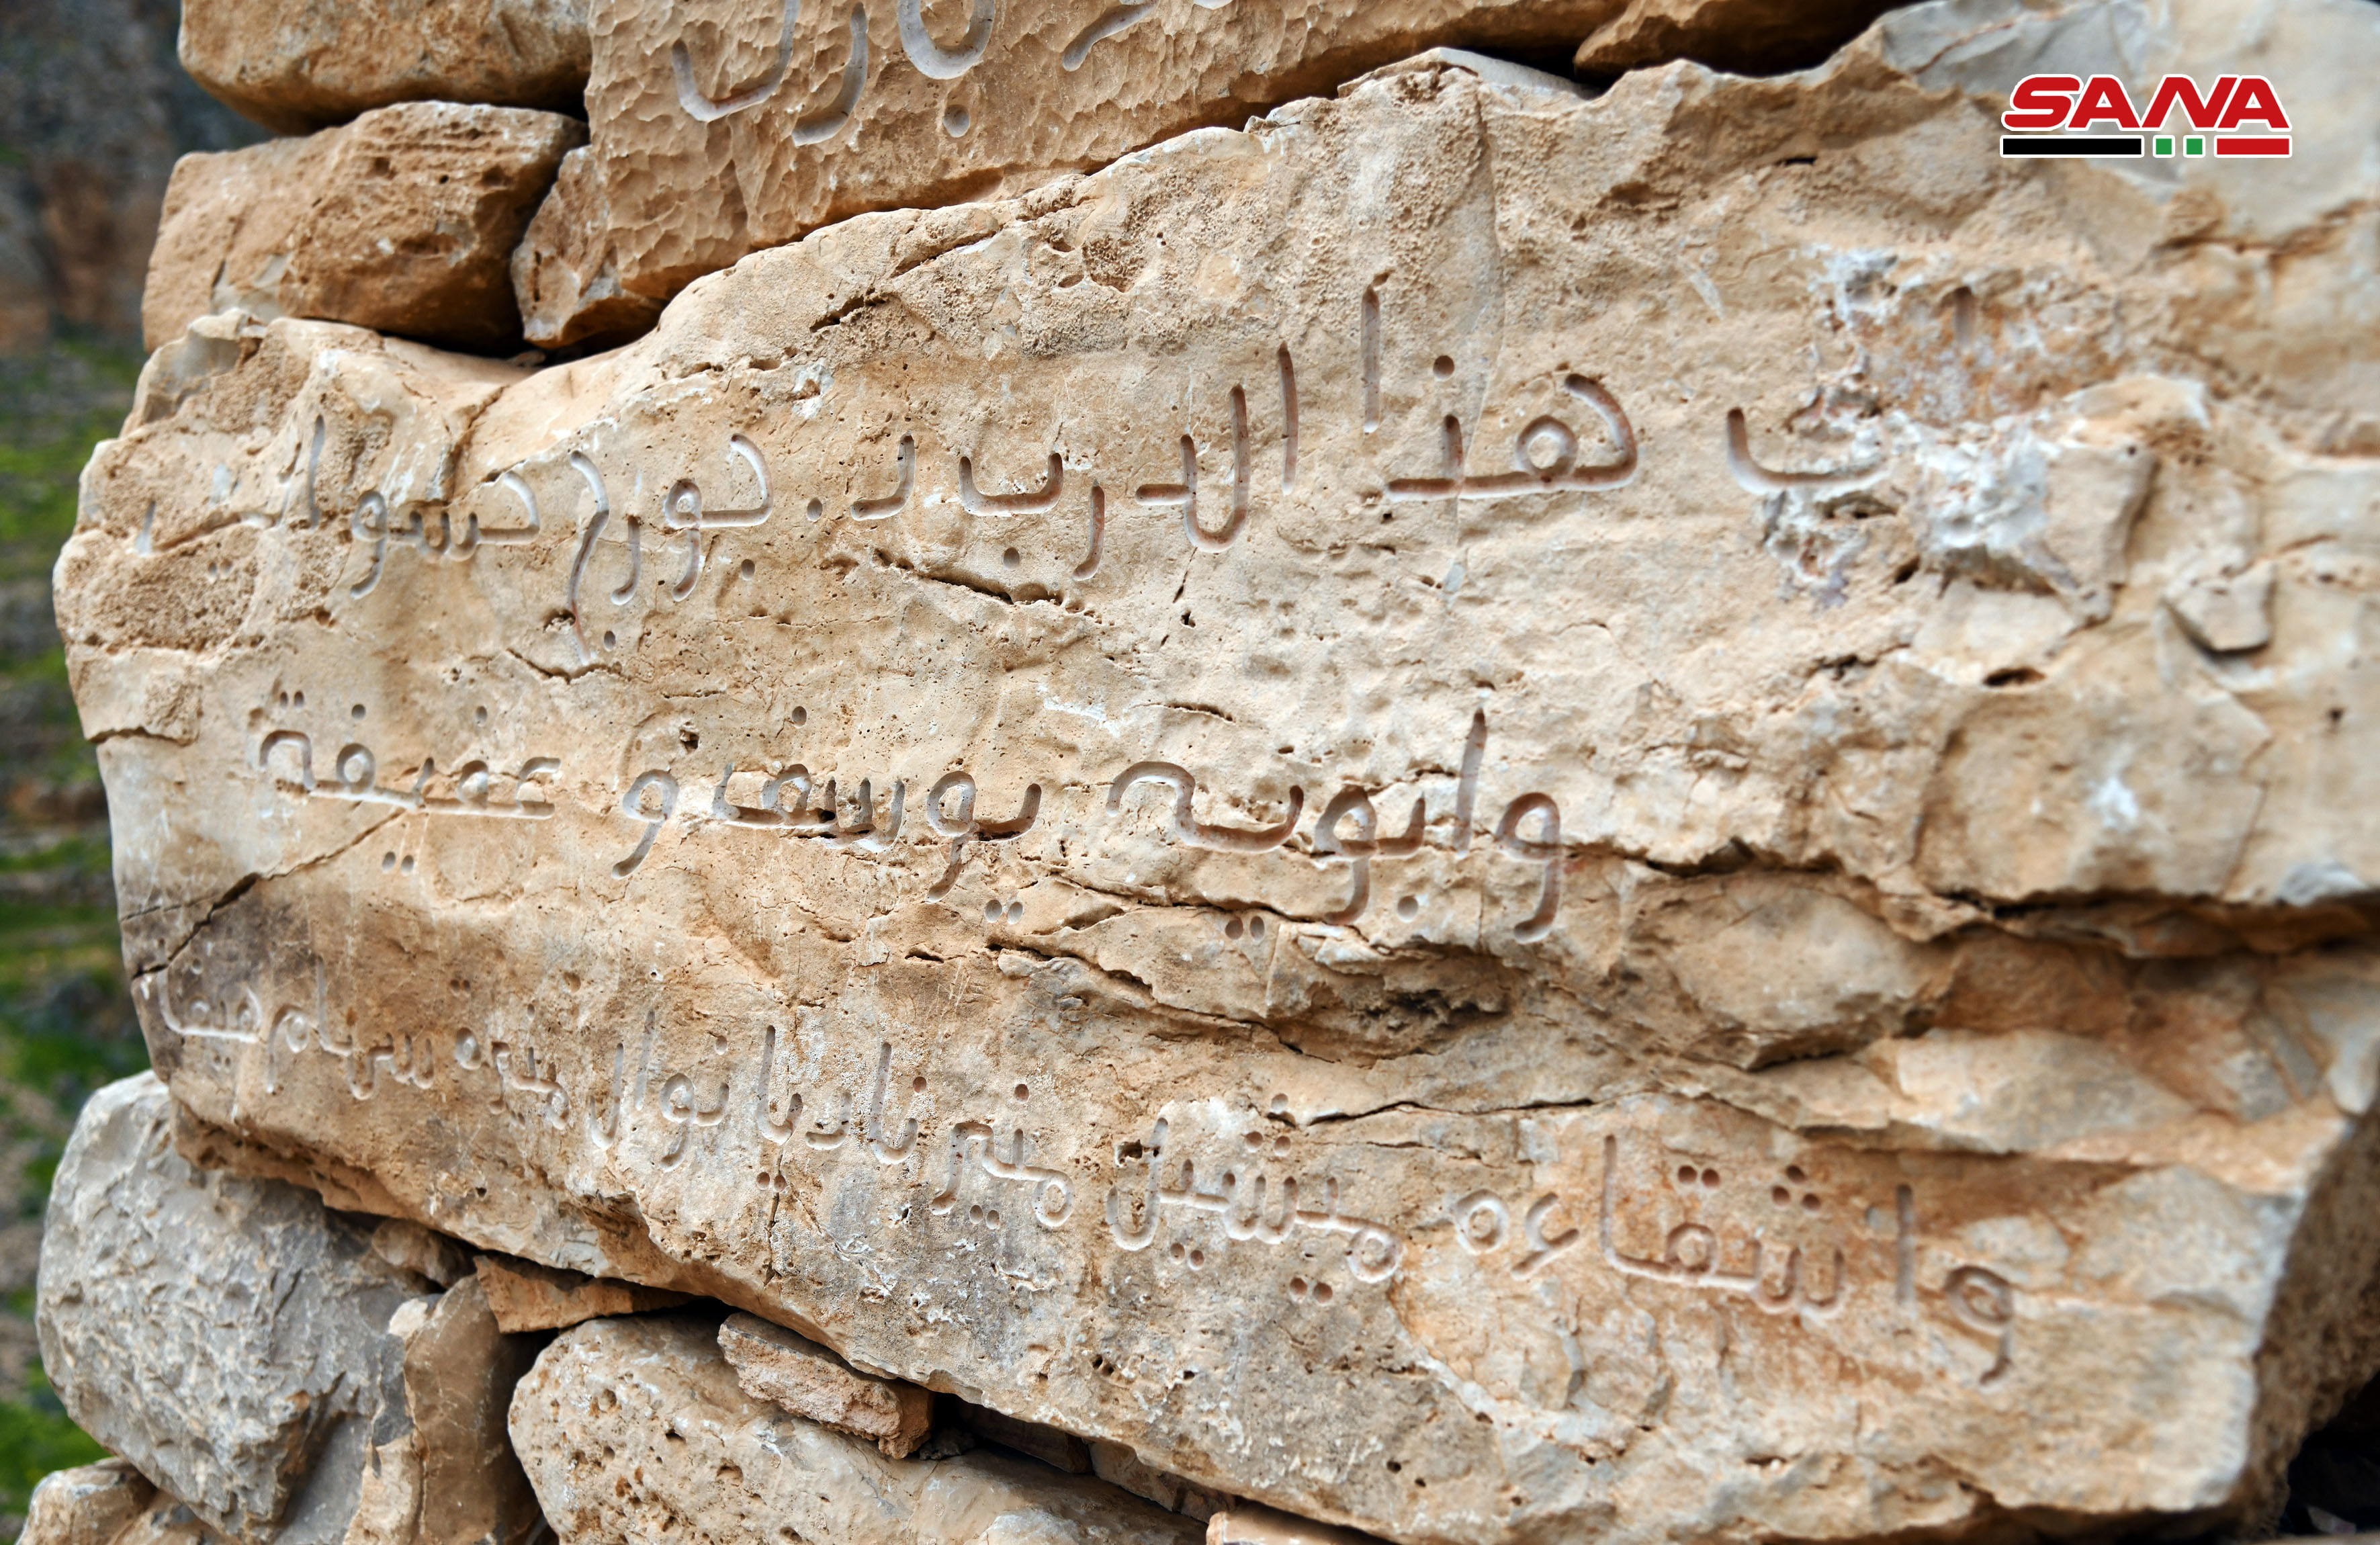 SANA
هذا الدرب د. جورج حسواني
وابويه يوسف و عفيفة
واشقاءه ميشيل منير ناديا نوال منيرة سهام هيفا